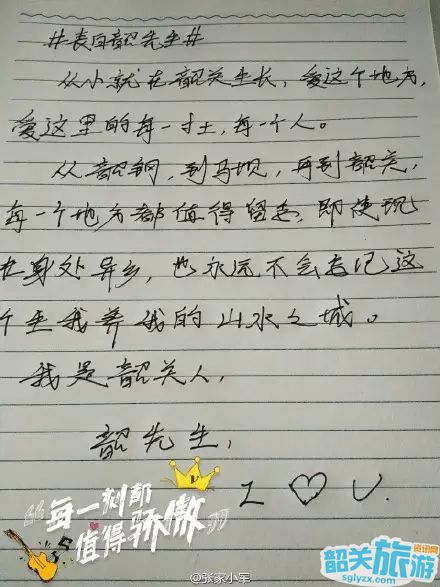 #表白韶先生#
从小就在韶关生长，爱这个地方，
爱这里的每一寸土，每一个人。
从韶钢，到马坝，再到韶关，
每一个地方都值得留恋，即使现
在身处异乡，也永远不会忘记这
个生我养我的山水之城。
我是韶关人，
韶先生，
I ♡ U.
“每一刻都
值得骄傲”
@张家小军
韶关旅游
资讯网
sglyzx.com